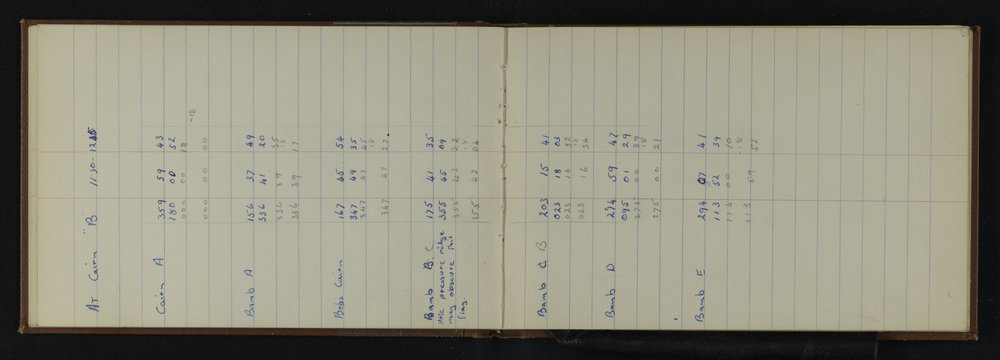 At Cairn "B" 11·30 - 12.15
Cairn A 359 59 43
180 00 52
000 00 18
-18
000 00 00
Bamb A 156 37 49
336 41 20
336 39 35
18
336 39 17
Bobs Cairn 167 45 54
347 49 35
347 47 45
18
347 47 27
Bamb B. C 175 41 35
Note pressure ridge 355 45 09
may obscure this 355 42 22
flag. 18
355 42 04
Bamb C B 203 15 41
023 18 03
023 16 52
18
023 16 34
Bamb D 274 59 47
095 01 29
275 00 39
18
275 00 21
Bamb E 294 07 41
113 52 39
114 00 10
-18
113 59 52